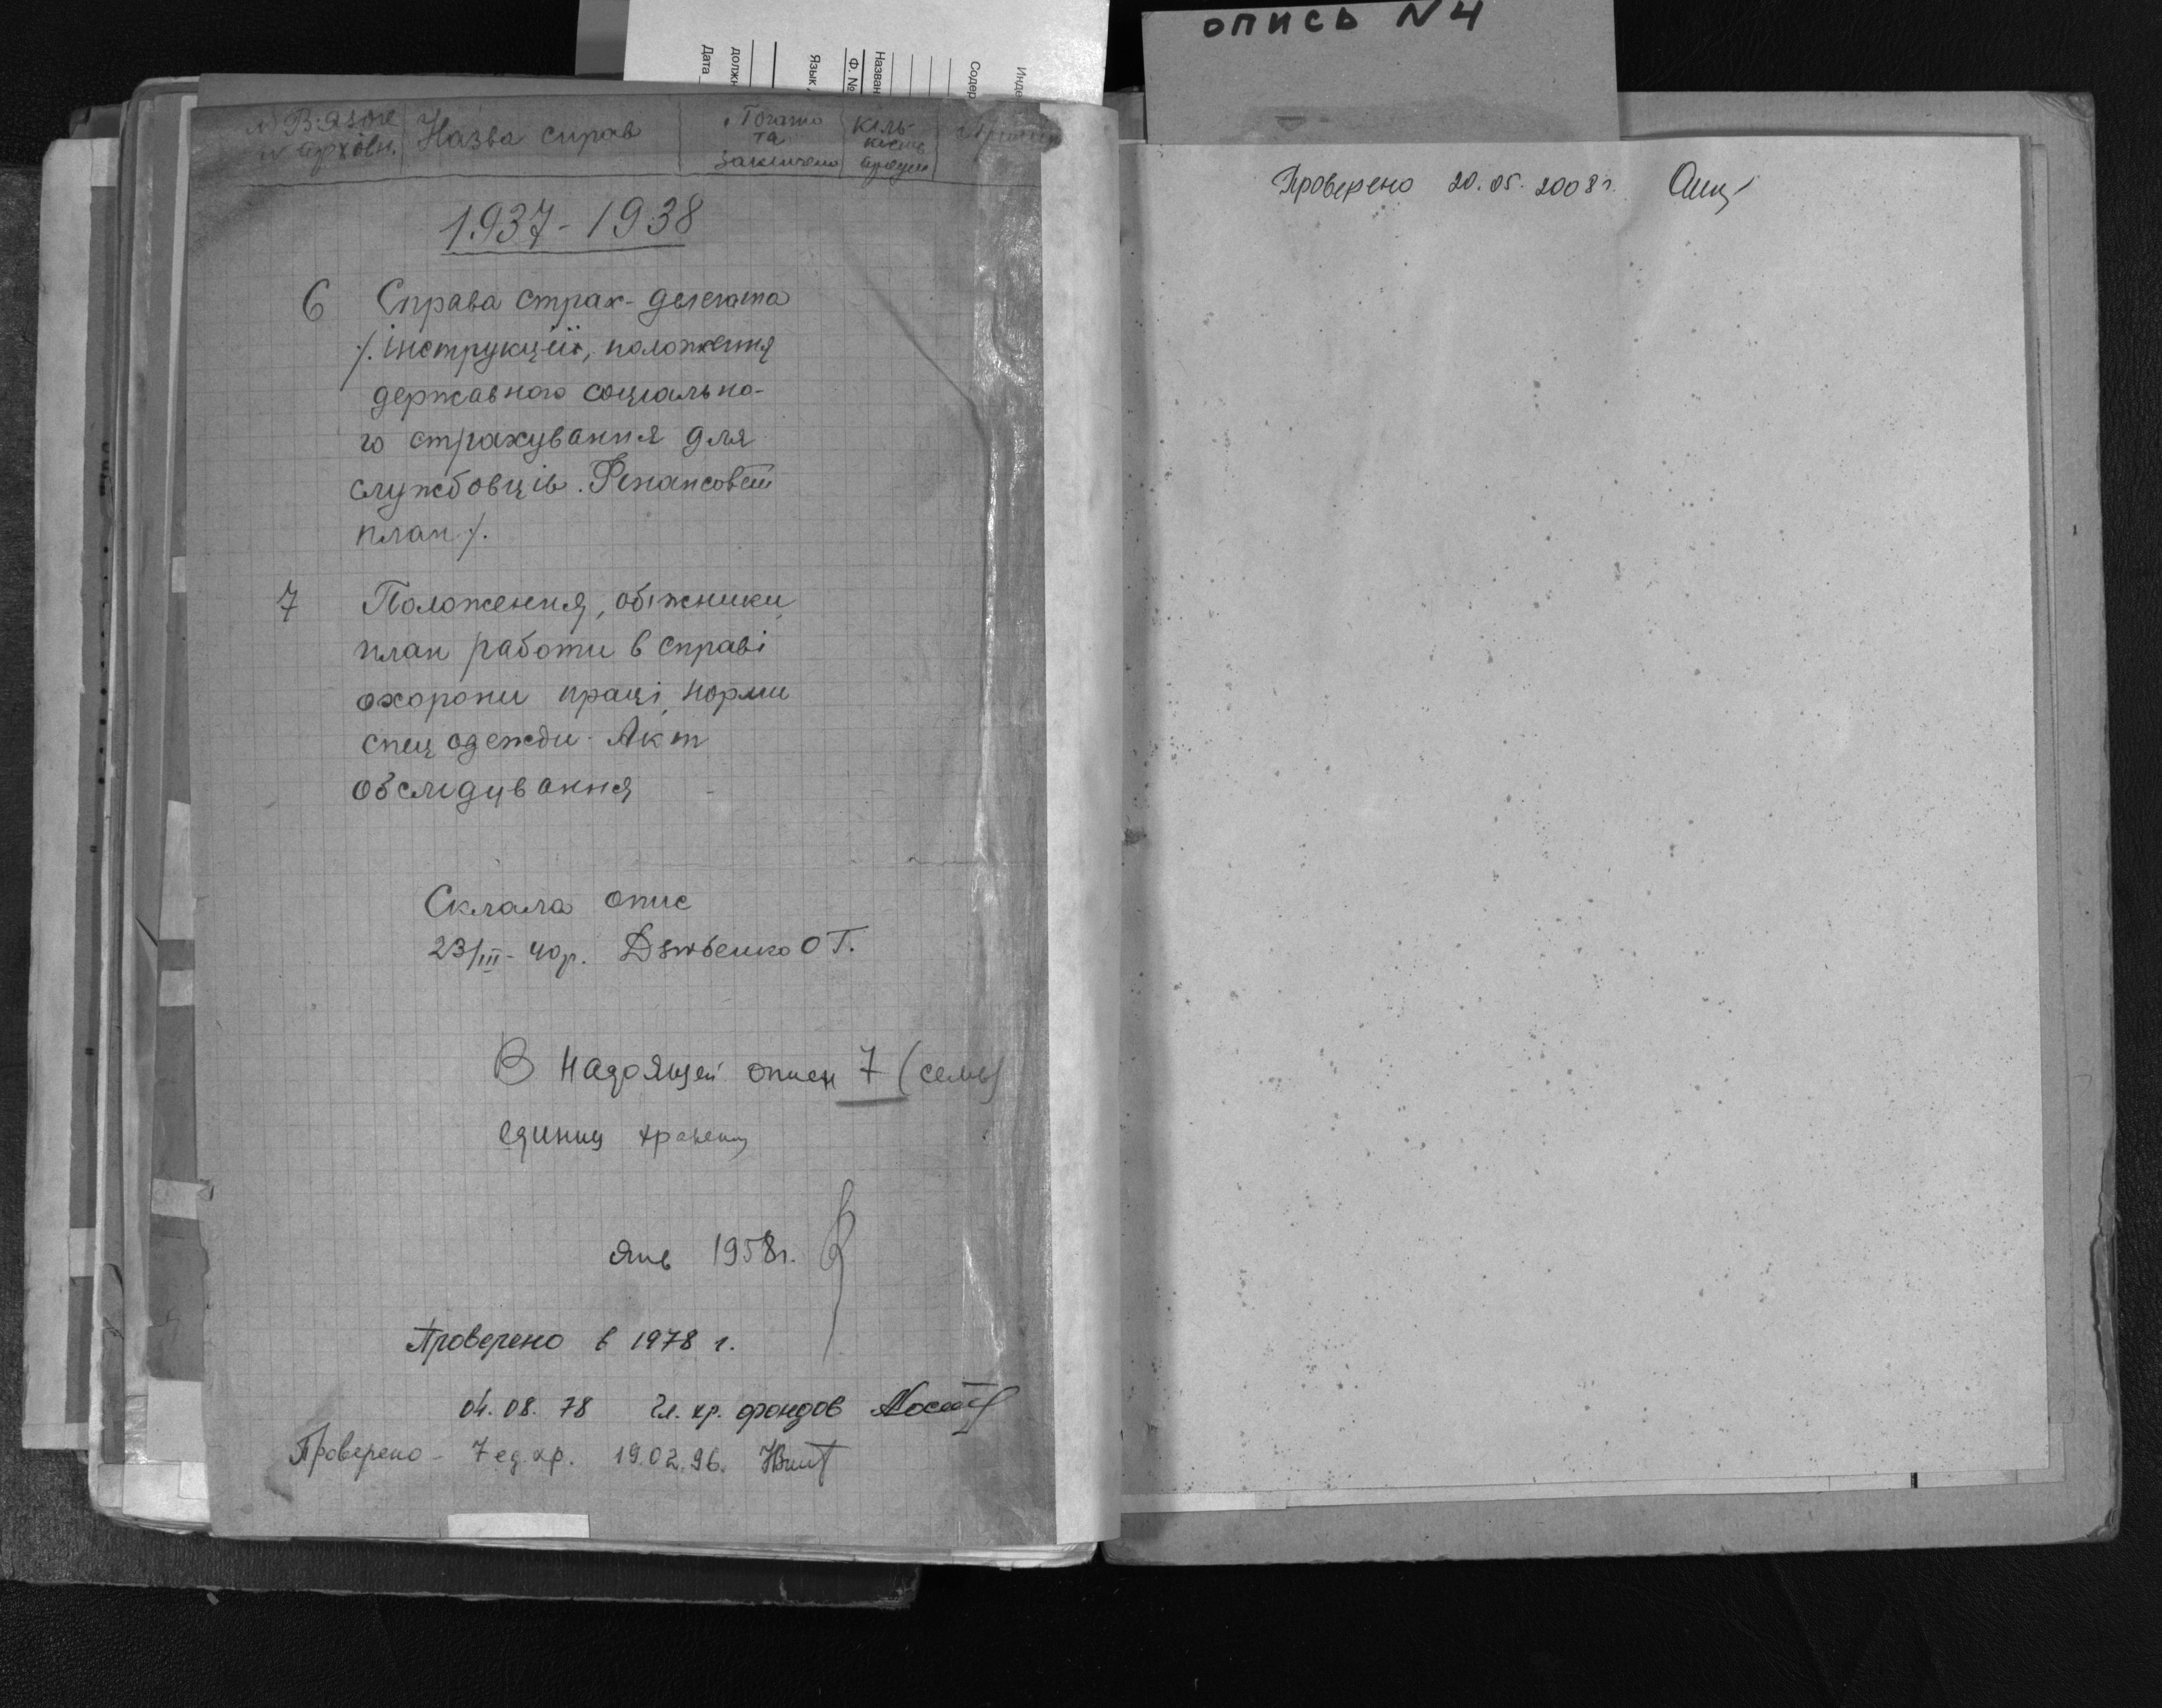 опись N 4
Инде
Содер
Назван
Ф. №
Язык,
должн
Дата
Назва справ
та
Кіль-
1937-1938
6 Справа страх-делегата
/. інструкціії, положення
державного соціально-
го страхування для
службовців. Фінансовий
план /.
7 Положення, обіжники,
план работи в справі
охорони праці, норми
спец одежди. Акт
обслідування
Склала опис
23/III-40р. О Т.
В описи 7 (семь)
единиц
Янв 1958г.
Проверено в 1978 г.
04. 08. 78 Гл. хр. фондов
Проверено - 7 ед. хр. 19.02.96.
Проверено 20.05.2008г.